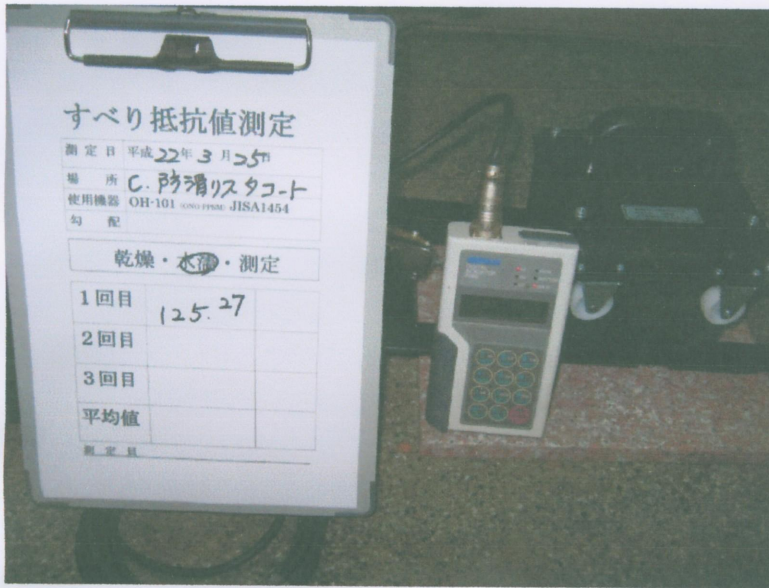 すべり抵抗値測定
測定日 平成22年3月25日
場所 C.防滑リスタコート
使用機器 OH-101 (ONO・PPSM) JISA1454
勾配
乾燥・水濡・測定
1回目 125.27
2回目
3回目
平均値
測定員